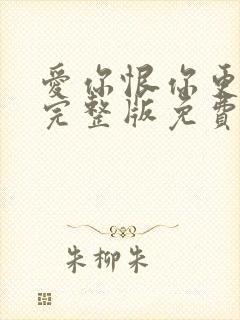 愛你恨你更
完整版免費
朱柳朱